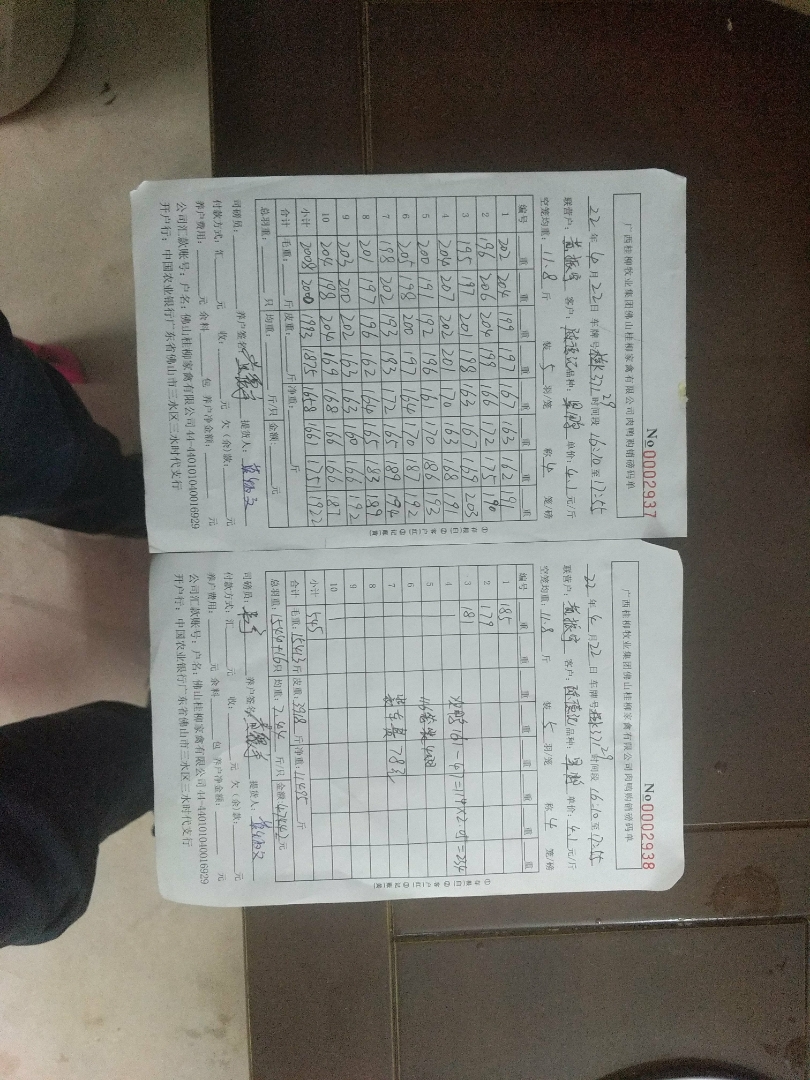 广西桂柳牧业集团佛山桂柳家禽有限公司肉鸭购销磅码单
No 0002937
22年4月22日 车牌号 37129 时间段 16:10至17:55
联营户: 客户: 品种: 单价: 4.1元/斤
空笼均重: 11.8斤 装5羽/笼 称4笼/磅
编号 重 重 重 重 重 重 重 重
1 202 204 199 197 167 163 162 191
2 196 206 204 199 166 172 175 190
3 195 197 201 198 163 167 169 203
4 204 207 202 201 170 163 168 191
5 200 191 192 196 161 170 186 193
6 205 198 200 197 164 176 187 192
7 198 202 193 193 172 165 189 194
8 201 197 196 162 164 165 183 189
9 203 200 202 163 163 160 166 192
10 204 198 204 169 168 166 166 187
小计 2008 2000 1993 1875 1658 1661 1751 1922
合计 毛重: 斤 皮重: 斤 净重: 斤
总羽重: 只 均重: 斤/只 金额: 元
司磅员: 养户签名: 提货人:
付款方式: 汇 元 收: 元 欠(余)款: 元
养户费用: 元 余料 包 养户净金额: 元
公司汇款账号: 户名: 佛山桂柳家禽有限公司 44-440101040016929
开户行: 中国农业银行广东省佛山市三水区三水时代支行
①存根(白) ②客户(红) ③记账(黄)
广西桂柳牧业集团佛山桂柳家禽有限公司肉鸭购销磅码单
No 0002938
22年4月22日 车牌号 37129 时间段 16:10至17:55
联营户: 客户: 品种: 单价: 4.1元/斤
空笼均重: 11.8斤 装5羽/笼 称4笼/磅
编号 重 重 重 重 重 重 重 重
1 185
2 179
3 181
4 161-47=114×2.05=234
5
6
7 78元
8
9
10
小计 545
合计 毛重: 15413斤 皮重: 3918斤 净重: 11495斤
总羽重: 只 均重: 7.44斤/只 金额: 47442元
司磅员: 养户签名: 提货人:
付款方式: 汇 元 收: 元 欠(余)款: 元
养户费用: 元 余料 包 养户净金额: 元
公司汇款账号: 户名: 佛山桂柳家禽有限公司 44-440101040016929
开户行: 中国农业银行广东省佛山市三水区三水时代支行
①存根(白) ②客户(红) ③记账(黄)